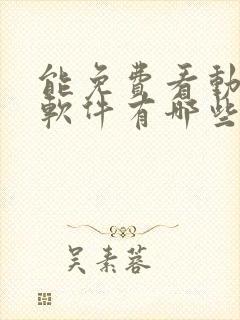 能免費看動
軟件有哪些
吴素蓉